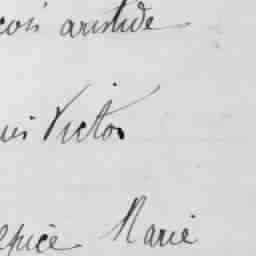 çois aristide
uis Victor
lpice Marie